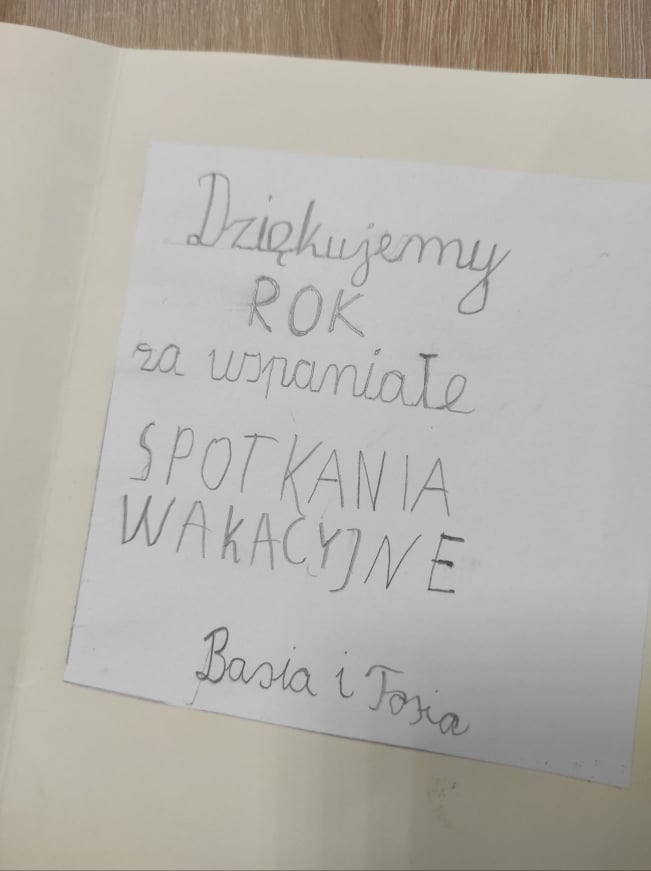 Dziękujemy
ROK
za wspaniałe
SPOTKANIA
WAKACYJNE
Basia i Tosia